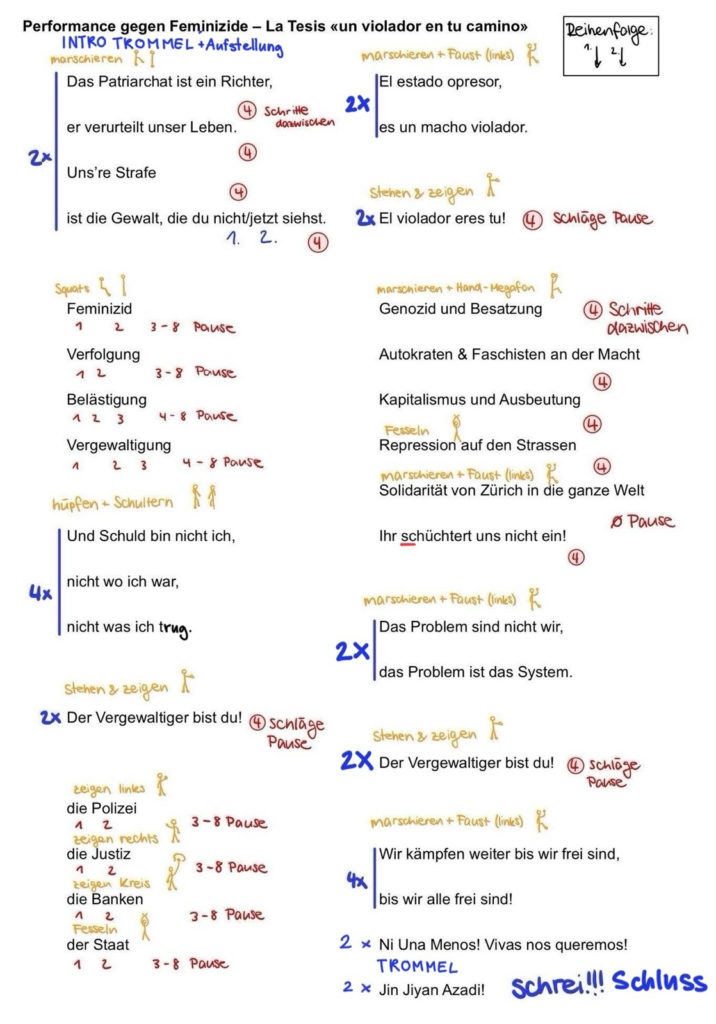 Performance gegen Feminizide – La Tesis «un violador en tu camino»
INTRO TROMMEL + Aufstellung
Reihenfolge:
1.↓ 2.↓
marschieren
2x
Das Patriarchat ist ein Richter,
④ Schritte dazwischen
er verurteilt unser Leben.
④
Uns're Strafe
④
ist die Gewalt, die du nicht/jetzt siehst.
1. 2. ④
Squats
Feminizid
1 2 3-8 Pause
Verfolgung
1 2 3-8 Pause
Belästigung
1 2 3 4-8 Pause
Vergewaltigung
1 2 3 4-8 Pause
hüpfen + Schultern
4x
Und Schuld bin nicht ich,
nicht wo ich war,
nicht was ich trug.
Stehen & zeigen
2x Der Vergewaltiger bist du! ④ Schläge Pause
zeigen links
die Polizei
1 2 3-8 Pause
zeigen rechts
die Justiz
1 2 3-8 Pause
zeigen Kreis
die Banken
1 2 3-8 Pause
Fesseln
der Staat
1 2 3-8 Pause
marschieren + Faust (links)
2x
El estado opresor,
es un macho violador.
Stehen & zeigen
2x El violador eres tu! ④ Schläge Pause
marschieren + Hand-Megafon
Genozid und Besatzung ④ Schritte dazwischen
Autokraten & Faschisten an der Macht
④
Kapitalismus und Ausbeutung
④
Fesseln
Repression auf den Strassen
④
marschieren + Faust (links)
Solidarität von Zürich in die ganze Welt
Ø Pause
Ihr schüchtert uns nicht ein!
④
marschieren + Faust (links)
2x
Das Problem sind nicht wir,
das Problem ist das System.
Stehen & zeigen
2x Der Vergewaltiger bist du! ④ Schläge Pause
marschieren + Faust (links)
4x
Wir kämpfen weiter bis wir frei sind,
bis wir alle frei sind!
2 x Ni Una Menos! Vivas nos queremos!
TROMMEL
2 x Jin Jiyan Azadi! schrei!!! Schluss